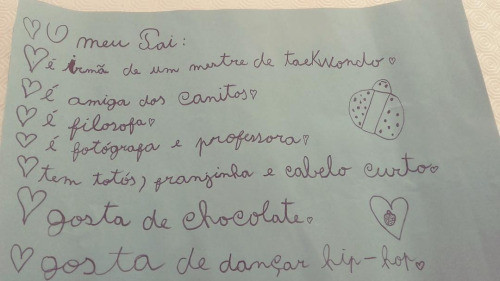 O meu Pai:
é irmã de um mestre de taekwondo
é amiga dos canitos
é filosofa
é fotógrafa e professora
tem totós, franzinha e cabelo curto
gosta de chocolate
gosta de dançar hip-hop